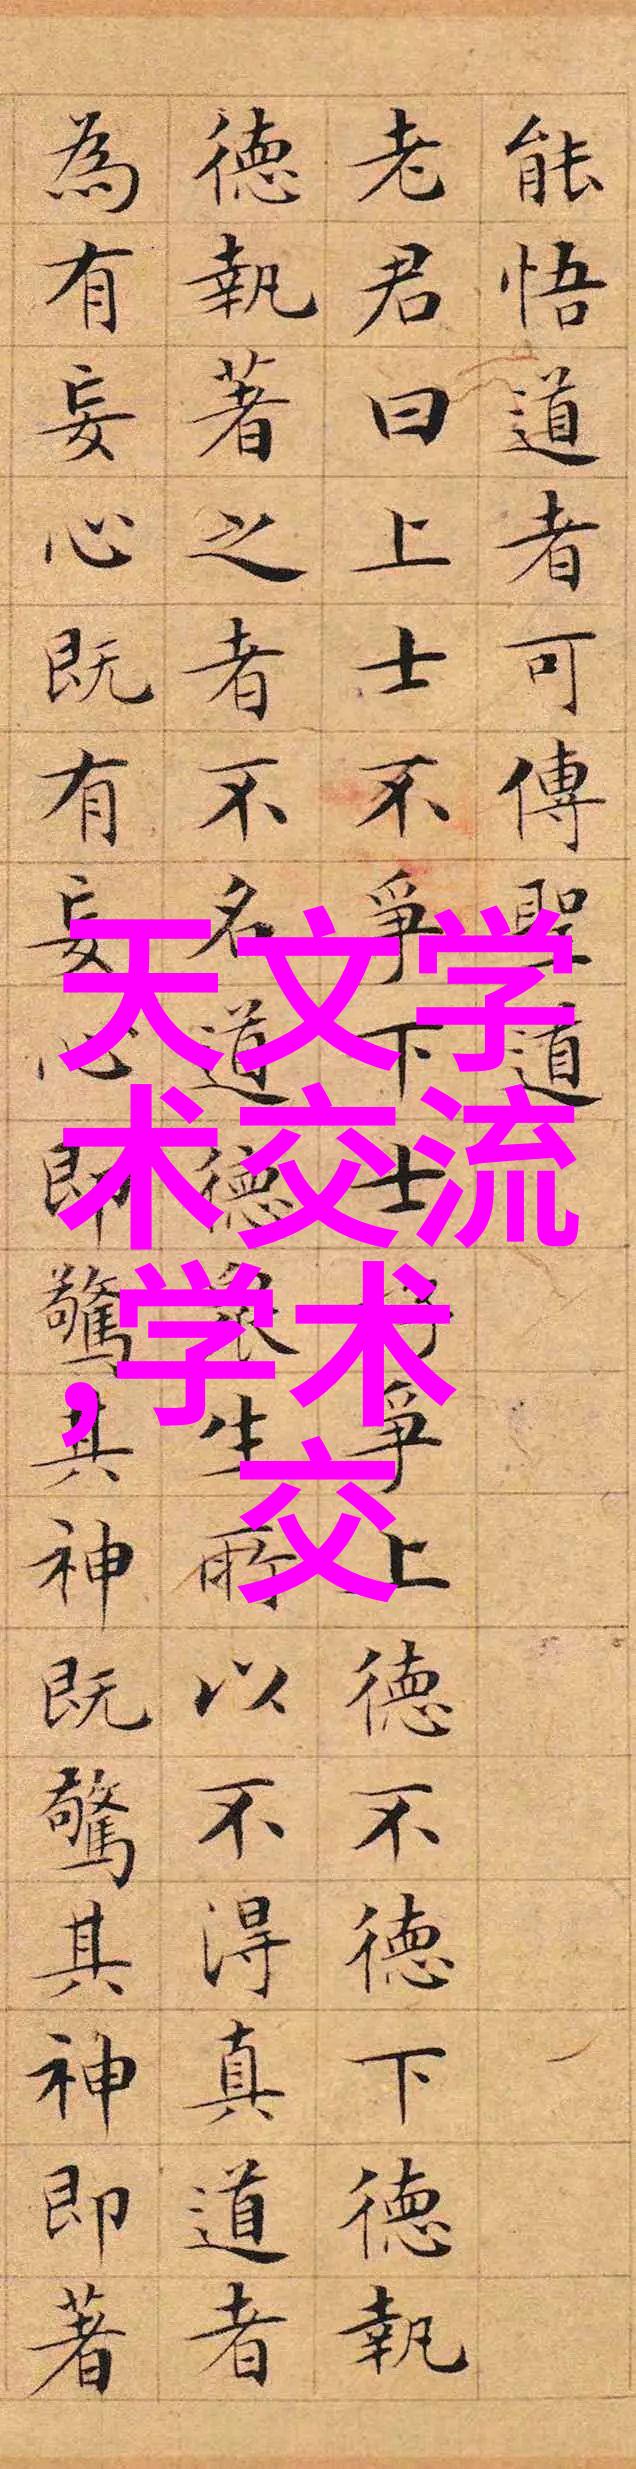 能悟道者可傳聖道
老君曰上士不爭下士好爭上德不德下德執
德執著之者不名道德眾生所以不得真道者
為有妄心既有妄心即驚其神既驚其神即著
天文学
术交流
,学术
交